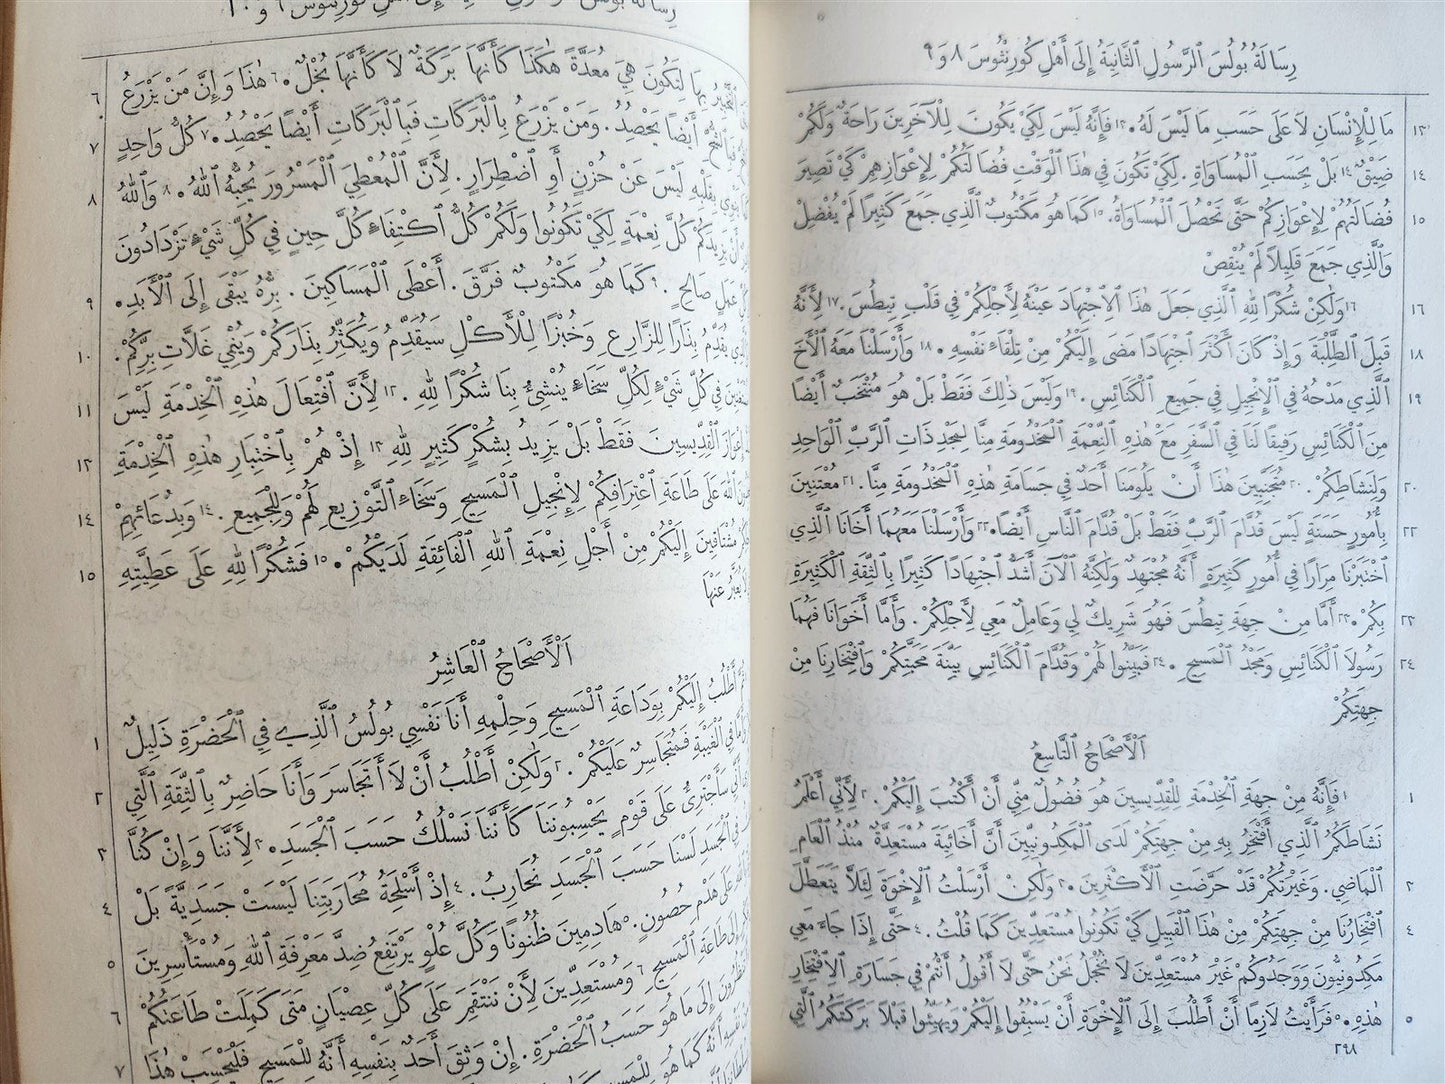 رِسَالَةُ بُولُسَ ٱلرَّسُولِ ٱلثَّانِيَةُ إِلَى أَهْلِ كُورِنْثُوسَ ٨ و ٩
مَا لِلْإِنْسَانِ لَا عَلَى حَسَبِ مَا لَيْسَ لَهُ. ١٣ فَإِنَّهُ لَيْسَ لِكَيْ يَكُونَ لِلْآخَرِينَ رَاحَةٌ وَلَكُمْ ١٣
ضِيْقٌ ١٤ بَلْ بِحَسَبِ ٱلْمُسَاوَاةِ. لِكَيْ تَكُونَ فِي هٰذَا ٱلْوَقْتِ فُضَالَتُكُمْ لِإِعْوَازِهِمْ كَيْ تَصِيرَ ١٤
فُضَالَتُهُمْ لِإِعْوَازِكُمْ حَتَّى تَحْصُلَ ٱلْمُسَاوَاةُ. ١٥ كَمَا هُوَ مَكْتُوبٌ ٱلَّذِي جَمَعَ كَثِيرًا لَمْ يُفْضِلْ ١٥
وَٱلَّذِي جَمَعَ قَلِيلًا لَمْ يُنْقِصْ
١٦ وَلٰكِنْ شُكْرًا لِلهِ ٱلَّذِي جَعَلَ هٰذَا ٱلِٱجْتِهَادَ عَيْنَهُ لِأَجْلِكُمْ فِي قَلْبِ تِيطُسَ. ١٧ لِأَنَّهُ ١٦
قَبِلَ ٱلطِّلْبَةَ وَإِذْ كَانَ أَكْثَرَ ٱجْتِهَادًا مَضَى إِلَيْكُمْ مِنْ تِلْقَاءِ نَفْسِهِ. ١٨ وَأَرْسَلْنَا مَعَهُ ٱلْأَخَ ١٨
ٱلَّذِي مَدْحُهُ فِي ٱلْإِنْجِيلِ فِي جَمِيعِ ٱلْكَنَائِسِ. ١٩ وَلَيْسَ ذٰلِكَ فَقَطْ بَلْ هُوَ مُنْتَخَبٌ أَيْضًا ١٩
مِنَ ٱلْكَنَائِسِ رَفِيقًا لَنَا فِي ٱلسَّفَرِ مَعَ هٰذِهِ ٱلنِّعْمَةِ ٱلْمَخْدُومَةِ مِنَّا لِمَجْدِ ذَاتِ ٱلرَّبِّ ٱلْوَاحِدِ
وَلِنَشَاطِكُمْ. ٢٠ مُتَجَنِّبِينَ هٰذَا أَنْ يَلُومَنَا أَحَدٌ فِي جَسَامَةِ هٰذِهِ ٱلْمَخْدُومَةِ مِنَّا. ٢١ مُعْتَنِينَ ٢٠
بِأُمُورٍ حَسَنَةٍ لَيْسَ قُدَّامَ ٱلرَّبِّ فَقَطْ بَلْ قُدَّامَ ٱلنَّاسِ أَيْضًا. ٢٢ وَأَرْسَلْنَا مَعَهُمَا أَخَانَا ٱلَّذِي ٢٢
ٱخْتَبَرْنَا مِرَارًا فِي أُمُورٍ كَثِيرَةٍ أَنَّهُ مُجْتَهِدٌ وَلٰكِنَّهُ ٱلْآنَ أَشَدُّ ٱجْتِهَادًا كَثِيرًا بِٱلثِّقَةِ ٱلْكَثِيرَةِ
بِكُمْ. ٢٣ أَمَّا مِنْ جِهَةِ تِيطُسَ فَهُوَ شَرِيكٌ لِي وَعَامِلٌ مَعِي لِأَجْلِكُمْ. وَأَمَّا أَخَوَانَا فَهُمَا ٢٣
رَسُولَا ٱلْكَنَائِسِ وَمَجْدُ ٱلْمَسِيحِ. ٢٤ فَبَيِّنُوا لَهُمْ وَقُدَّامَ ٱلْكَنَائِسِ بَيِّنَةَ مَحَبَّتِكُمْ وَٱفْتِخَارِنَا مِنْ ٢٤
جِهَتِكُمْ
اَلْأَصْحَاحُ ٱلتَّاسِعُ
١ فَإِنَّهُ مِنْ جِهَةِ ٱلْخِدْمَةِ لِلْقِدِّيسِينَ هُوَ فُضُولٌ مِنِّي أَنْ أَكْتُبَ إِلَيْكُمْ. ٢ لِأَنِّي أَعْلَمُ ١
نَشَاطَكُمُ ٱلَّذِي أَفْتَخِرُ بِهِ مِنْ جِهَتِكُمْ لَدَى ٱلْمَكِدُونِيِّينَ أَنَّ أَخَائِيَةَ مُسْتَعِدَّةٌ مُنْذُ ٱلْعَامِ
ٱلْمَاضِي. وَغَيْرَتُكُمْ قَدْ حَرَّضَتِ ٱلْأَكْثَرِينَ. ٣ وَلٰكِنْ أَرْسَلْتُ ٱلْإِخْوَةَ لِئَلَّا يَتَعَطَّلَ ٣
ٱفْتِخَارُنَا مِنْ جِهَتِكُمْ مِنْ هٰذَا ٱلْقَبِيلِ كَيْ تَكُونُوا مُسْتَعِدِّينَ كَمَا قُلْتُ. ٤ حَتَّى إِذَا جَاءَ مَعِي ٤
مَكِدُونِيُّونَ وَوَجَدُوكُمْ غَيْرَ مُسْتَعِدِّينَ لَا نُخْجَلُ نَحْنُ حَتَّى لَا أَقُولُ أَنْتُمْ فِي جَسَارَةِ ٱلِٱفْتِخَارِ
هٰذِهِ. ٥ فَرَأَيْتُ لَازِمًا أَنْ أَطْلُبَ إِلَى ٱلْإِخْوَةِ أَنْ يَسْبِقُوا إِلَيْكُمْ وَيُهَيِّئُوا قَبْلًا بَرَكَتَكُمُ ٱلَّتِي ٥
٢٩٨
رِسَالَةُ بُولُسَ إِلَى أَهْلِ كُورِنْثُوسَ ٩ و ١٠
ٱلتَّخْبِيرُ بِهَا لِتَكُونَ هِيَ مُعَدَّةً هٰكَذَا كَأَنَّهَا بَرَكَةٌ لَا كَأَنَّهَا بُخْلٌ. ٦ هٰذَا وَإِنَّ مَنْ يَزْرَعُ ٦
فَبِٱلشُّحِّ أَيْضًا يَحْصُدُ. وَمَنْ يَزْرَعُ بِٱلْبَرَكَاتِ فَبِٱلْبَرَكَاتِ أَيْضًا يَحْصُدُ. ٧ كُلُّ وَاحِدٍ ٧
يَنْوِي بِقَلْبِهِ لَيْسَ عَنْ حُزْنٍ أَوِ ٱضْطِرَارٍ. لِأَنَّ ٱلْمُعْطِيَ ٱلْمَسْرُورَ يُحِبُّهُ ٱللهُ. ٨ وَٱللهُ ٨
أَنْ يَزِيدَكُمْ كُلَّ نِعْمَةٍ لِكَيْ تَكُونُوا وَلَكُمْ كُلُّ ٱكْتِفَاءٍ كُلَّ حِينٍ فِي كُلِّ شَيْءٍ تَزْدَادُونَ
عَمَلٍ صَالِحٍ. ٩ كَمَا هُوَ مَكْتُوبٌ فَرَّقَ. أَعْطَى ٱلْمَسَاكِينَ. بِرُّهُ يَبْقَى إِلَى ٱلْأَبَدِ. ٩
يُقَدِّمُ بِذَارًا لِلزَّارِعِ وَخُبْزًا لِلْأَكْلِ سَيُقَدِّمُ وَيُكَثِّرُ بِذَارَكُمْ وَيُنْمِي غَلَّاتِ بِرِّكُمْ. ١٠
فِي كُلِّ شَيْءٍ لِكُلِّ سَخَاءٍ يُنْشِئُ بِنَا شُكْرًا لِلهِ. ١٢ لِأَنَّ ٱفْتِعَالَ هٰذِهِ ٱلْخِدْمَةِ لَيْسَ ١١
إِعْوَازَ ٱلْقِدِّيسِينَ فَقَطْ بَلْ يَزِيدُ بِشُكْرٍ كَثِيرٍ لِلهِ ١٣ إِذْ هُمْ بِٱخْتِبَارِ هٰذِهِ ٱلْخِدْمَةِ ١٣
ٱللهَ عَلَى طَاعَةِ ٱعْتِرَافِكُمْ لِإِنْجِيلِ ٱلْمَسِيحِ وَسَخَاءِ ٱلتَّوْزِيعِ لَهُمْ وَلِلْجَمِيعِ. ١٤ وَبِدُعَائِهِمْ ١٤
مُشْتَاقِينَ إِلَيْكُمْ مِنْ أَجْلِ نِعْمَةِ ٱللهِ ٱلْفَائِقَةِ لَدَيْكُمْ. ١٥ فَشُكْرًا لِلهِ عَلَى عَطِيَّتِهِ ١٥
يُعَبَّرُ عَنْهَا
اَلْأَصْحَاحُ ٱلْعَاشِرُ
أَطْلُبُ إِلَيْكُمْ بِوَدَاعَةِ ٱلْمَسِيحِ وَحِلْمِهِ أَنَا نَفْسِي بُولُسُ ٱلَّذِي فِي ٱلْحَضْرَةِ ذَلِيلٌ ١
فِي ٱلْغَيْبَةِ فَمُتَجَاسِرٌ عَلَيْكُمْ. ٢ وَلٰكِنْ أَطْلُبُ أَنْ لَا أَتَجَاسَرَ وَأَنَا حَاضِرٌ بِٱلثِّقَةِ ٱلَّتِي ٢
أَنِّي سَأَجْتَرِئُ عَلَى قَوْمٍ يَحْسِبُونَنَا كَأَنَّنَا نَسْلُكُ حَسَبَ ٱلْجَسَدِ. ٣ لِأَنَّنَا وَإِنْ كُنَّا ٣
فِي ٱلْجَسَدِ لَسْنَا حَسَبَ ٱلْجَسَدِ نُحَارِبُ. ٤ إِذْ أَسْلِحَةُ مُحَارَبَتِنَا لَيْسَتْ جَسَدِيَّةً بَلْ ٤
عَلَى هَدْمِ حُصُونٍ. ٥ هَادِمِينَ ظُنُونًا وَكُلَّ عُلْوٍ يَرْتَفِعُ ضِدَّ مَعْرِفَةِ ٱللهِ وَمُسْتَأْسِرِينَ ٥
إِلَى طَاعَةِ ٱلْمَسِيحِ ٦ وَمُسْتَعِدِّينَ لِأَنْ نَنْتَقِمَ عَلَى كُلِّ عِصْيَانٍ مَتَى كَمِلَتْ طَاعَتُكُمْ ٦
إِلَى مَا هُوَ حَسَبَ ٱلْحَضْرَةِ. إِنْ وَثِقَ أَحَدٌ بِنَفْسِهِ أَنَّهُ لِلْمَسِيحِ فَلْيَحْسِبْ هٰذَا ٧